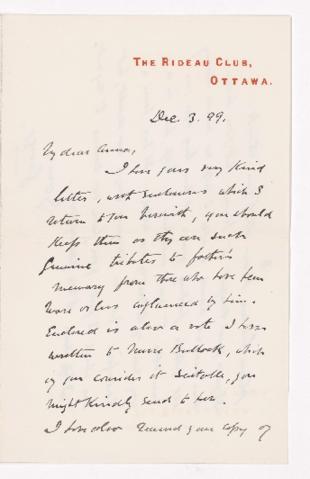 THE RIDEAU CLUB,
OTTAWA.
Dec. 3. 99.
My dear Anna,
I have your very kind
letter, with enclosures which I
return to you herewith, you should
keep them as they are such
genuine tributes to father's
memory from those who have been
more or less influenced by him.
Enclosed is also a note I have
written to Bullock, which
if you consider it suitable, you
might kindly send to her.
I have also received your copy of